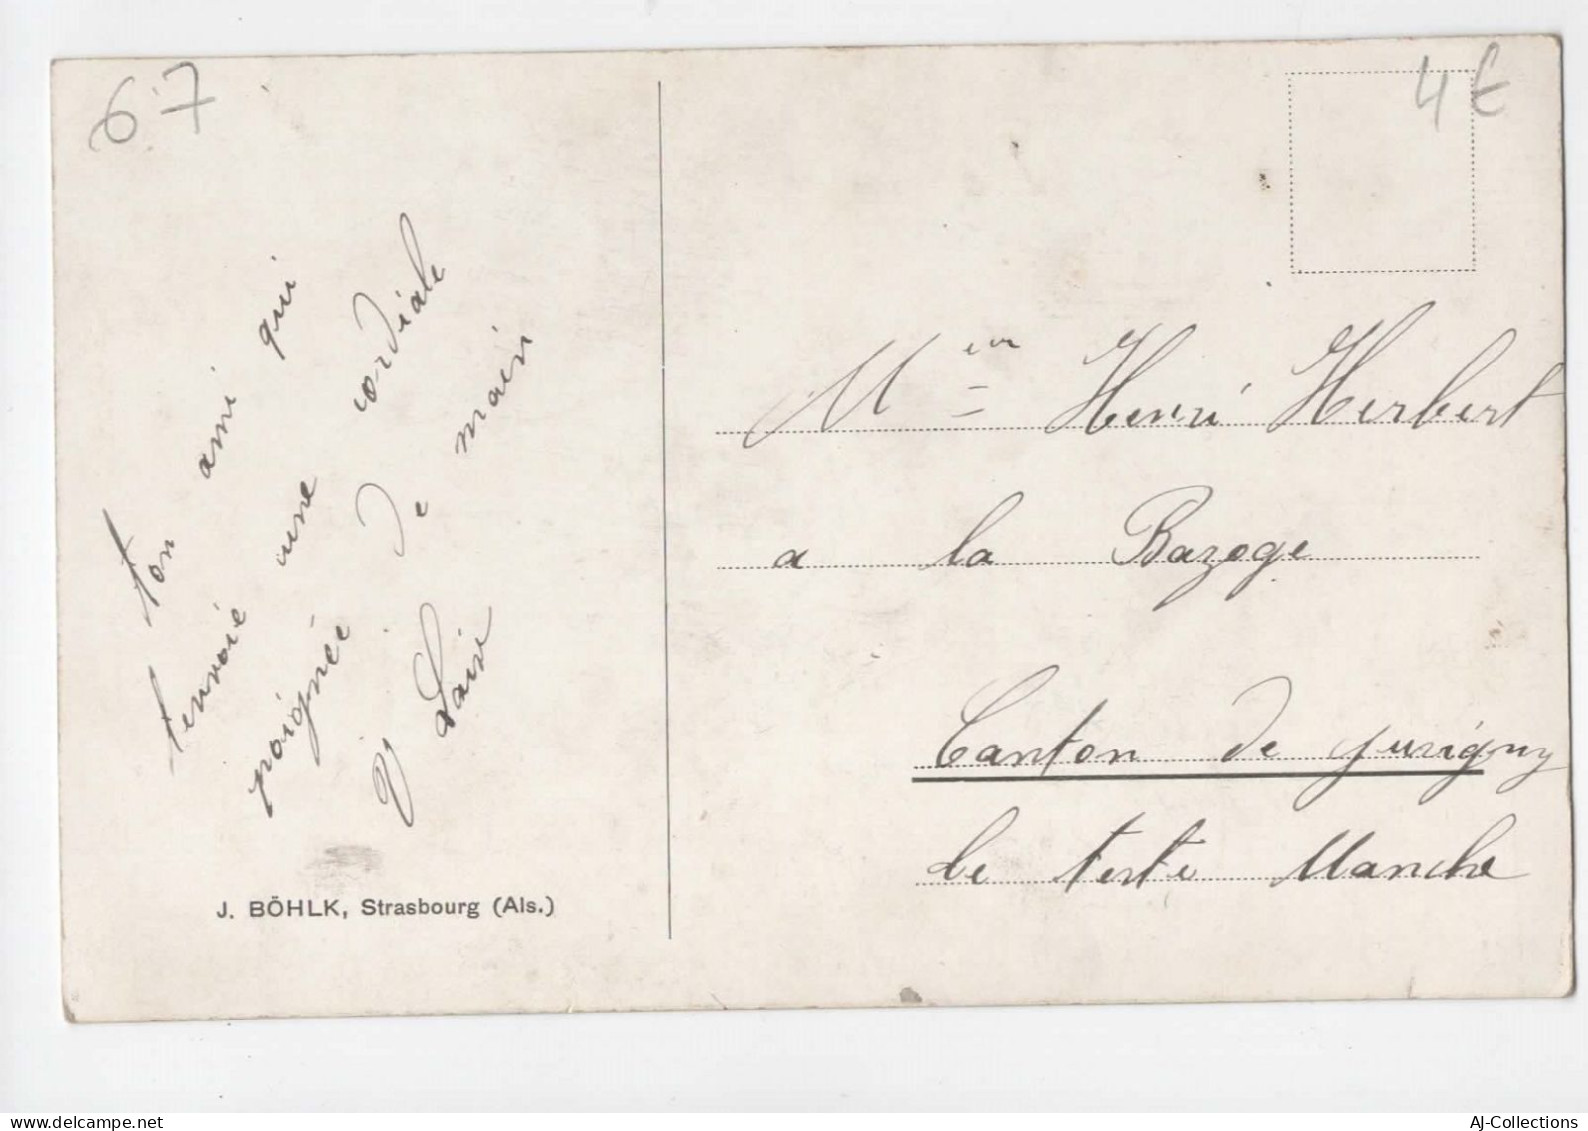 67
4€
ton ami qui
tenvoié une cordiale
poignée de main
Y Laisi
J. BÖHLK, Strasbourg (Als.)
Mᵉᵘʳ Henri Herbert
a la Bazoge
Canton de juvigny
le tertе Manche
AJ-Collections